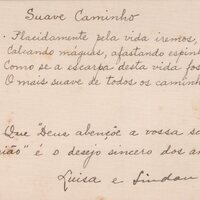 Suave Caminho
Placidamente pela vida iremos,
Calcando máguas, afastando espin
Como se a escarpa desta vida fos
O mais suave de todos os caminh
Que "Deus abençõe a vossa
é o desejo sincero dos a
Luisa e Lindau